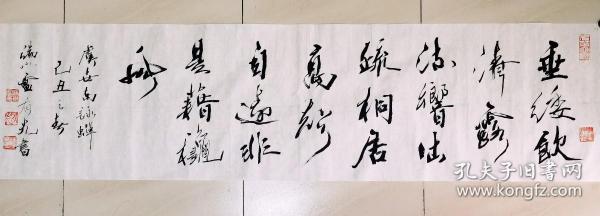 垂緌飲
清露
流響出
疏桐居
高聲
自遠非
是藉秋
風
虞世南詠蟬
己丑之春
孔夫子旧书网
www.kongfz.com